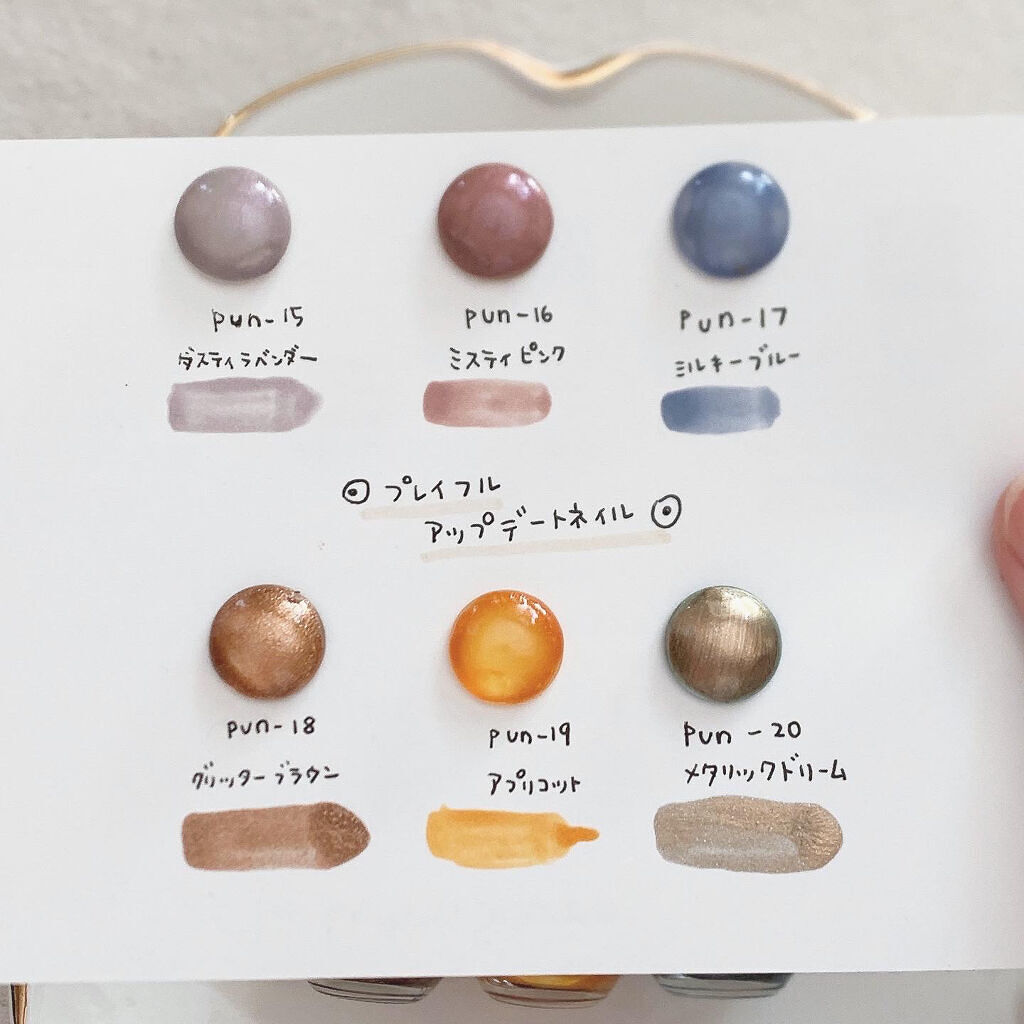 pun-15
ダスティラベンダー
pun-16
ミスティピンク
pun-17
ミルキーブルー
プレイフル
アップデートネイル
pun-18
グリッターブラウン
pun-19
アプリコット
pun-20
メタリックドリーム